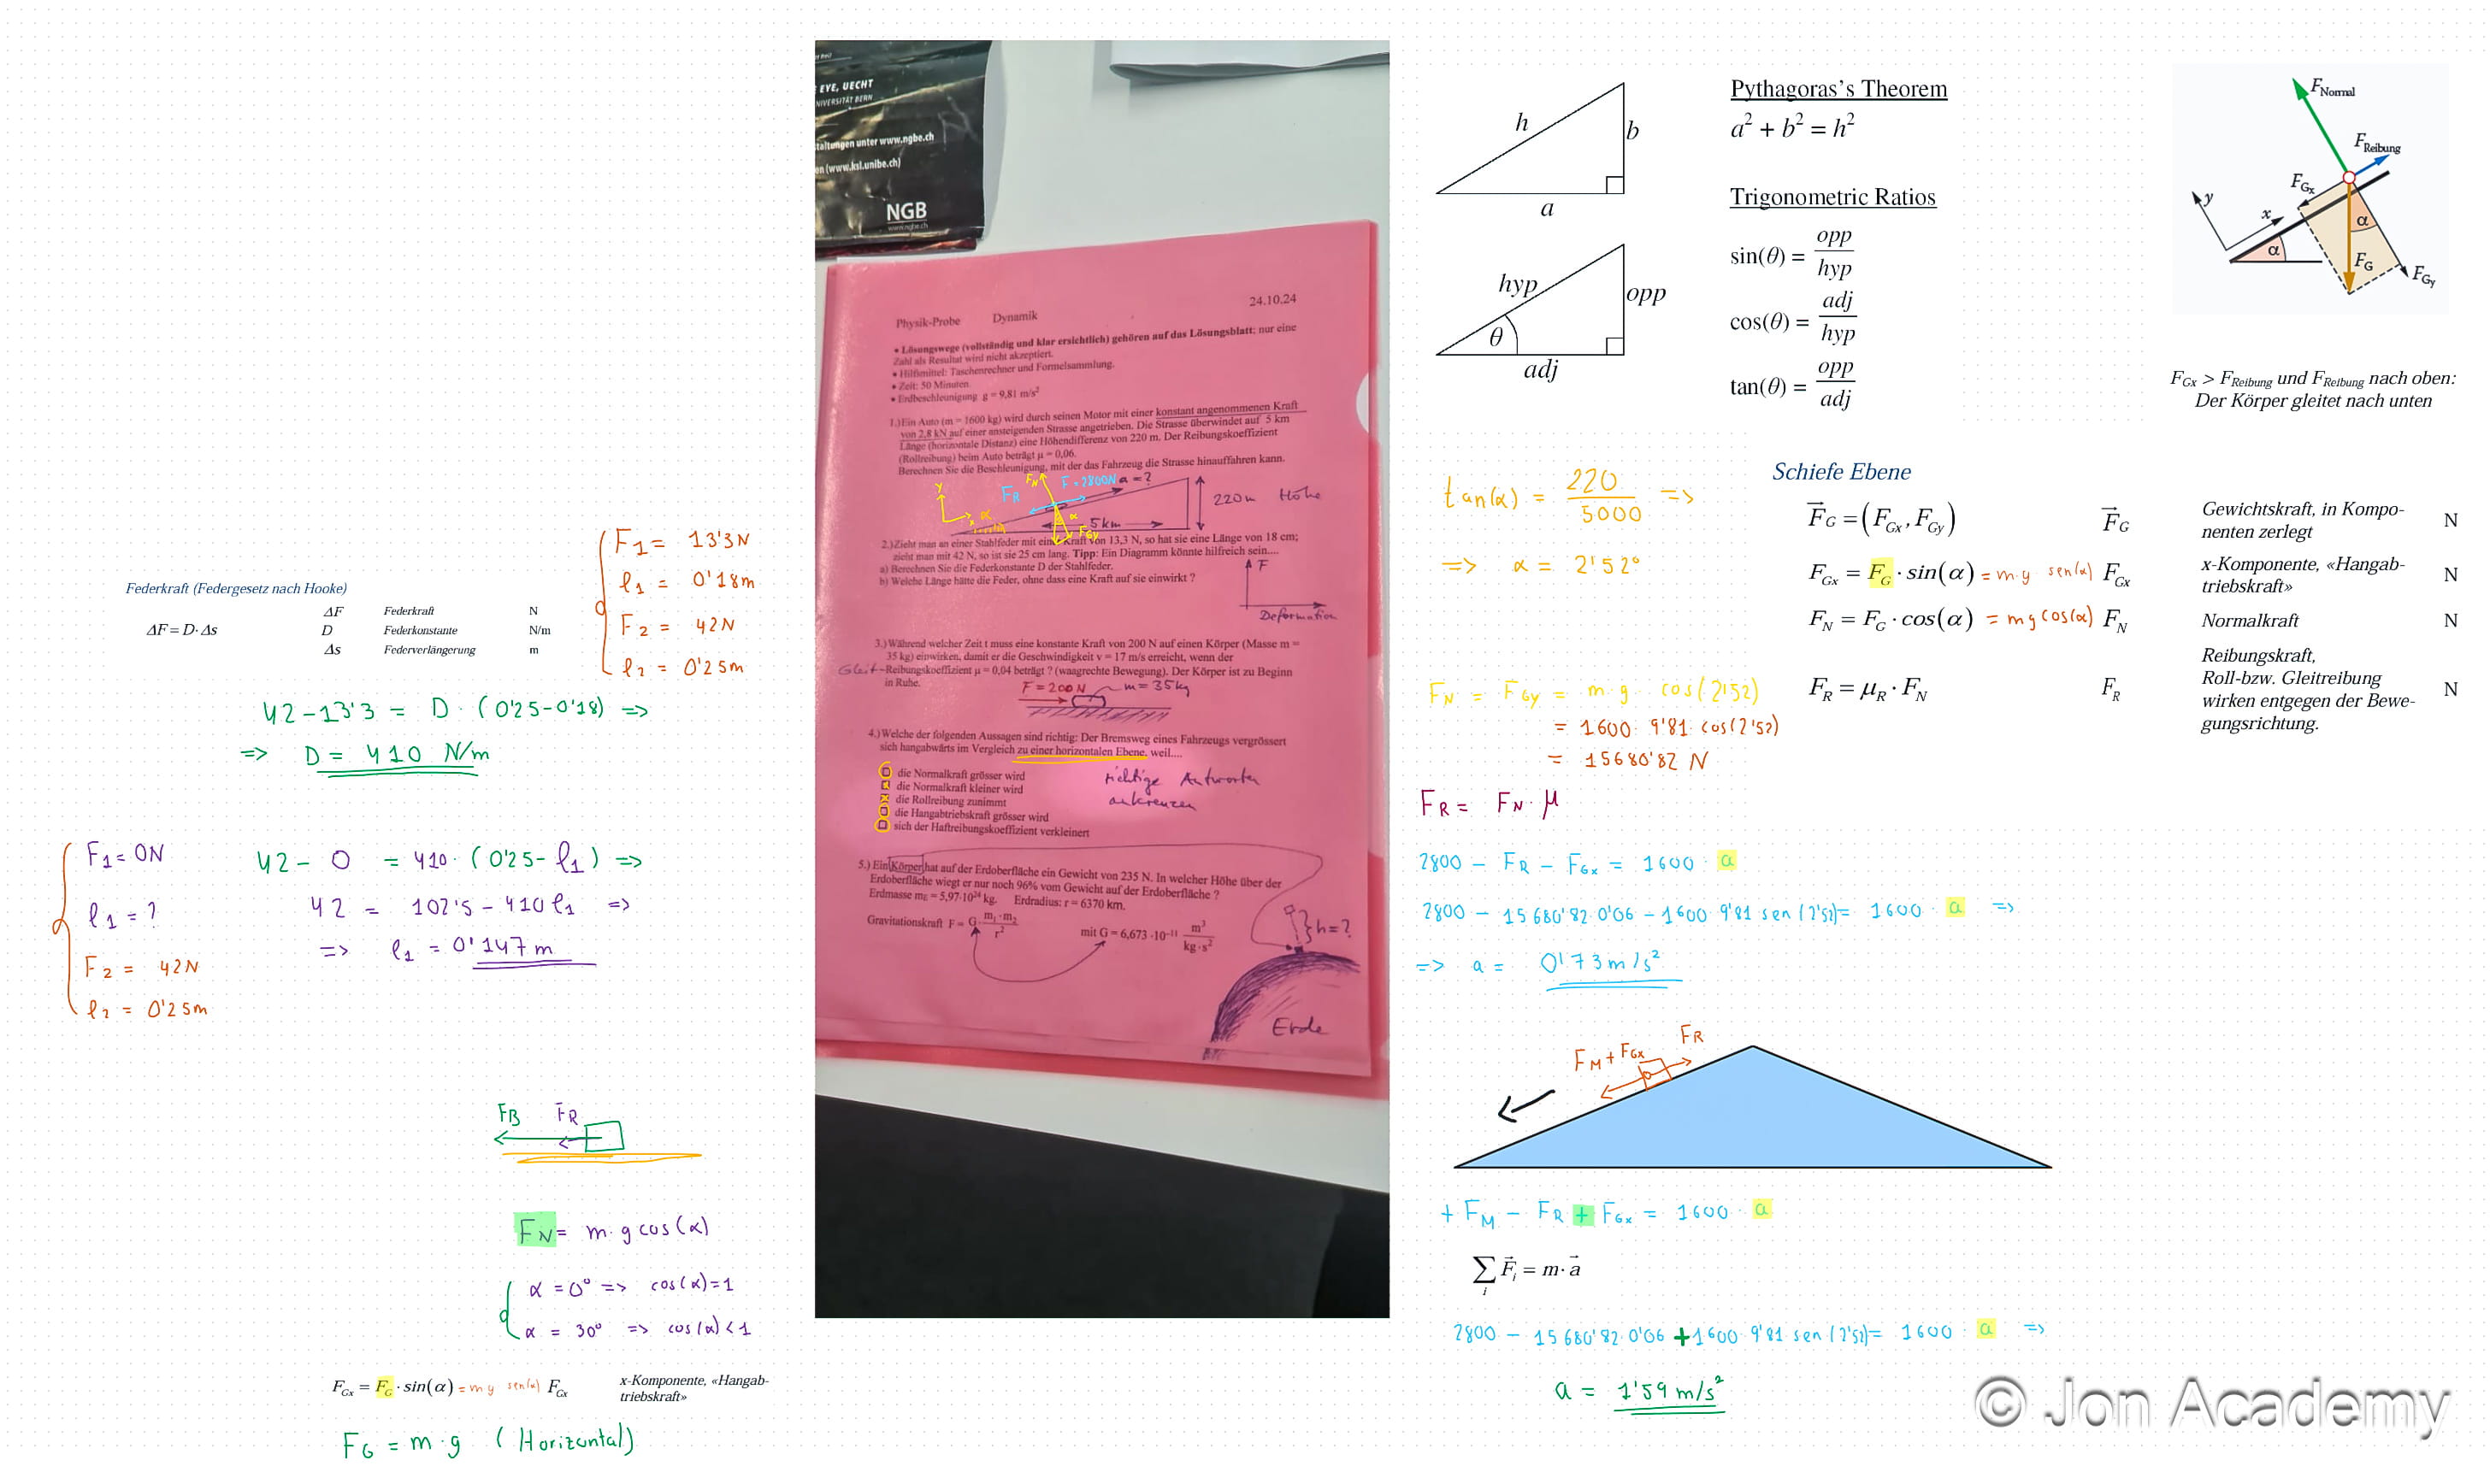 EYE, UECHT
NIVERSITÄT BERN
taltungen unter www.ngbe.ch
en (www.ksl.unibe.ch)
NGB
www.ngbe.ch
24.10.24
Physik-Probe Dynamik
• Lösungswege (vollständig und klar ersichtlich) gehören auf das Lösungsblatt: nur eine
Zahl als Resultat wird nicht akzeptiert.
• Hilfsmittel: Taschenrechner und Formelsammlung.
• Zeit: 50 Minuten.
• Erdbeschleunigung g = 9,81 m/s²
1.)Ein Auto (m = 1600 kg) wird durch seinen Motor mit einer konstant angenommenen Kraft
von 2,8 kN auf einer ansteigenden Strasse angetrieben. Die Strasse überwindet auf 5 km
Länge (horizontale Distanz) eine Höhendifferenz von 220 m. Der Reibungskoeffizient
(Rollreibung) beim Auto beträgt μ = 0,06.
Berechnen Sie die Beschleunigung, mit der das Fahrzeug die Strasse hinauffahren kann.
y x α F_R F_N F = 2800N a = ? α F_Gy
5km 220m Höhe
2.)Zieht man an einer Stahlfeder mit einer Kraft von 13,3 N, so hat sie eine Länge von 18 cm;
zieht man mit 42 N, so ist sie 25 cm lang. Tipp: Ein Diagramm könnte hilfreich sein....
a) Berechnen Sie die Federkonstante D der Stahlfeder.
b) Welche Länge hätte die Feder, ohne dass eine Kraft auf sie einwirkt ?
F
Deformation
3.) Während welcher Zeit t muss eine konstante Kraft von 200 N auf einen Körper (Masse m =
35 kg) einwirken, damit er die Geschwindigkeit v = 17 m/s erreicht, wenn der
Gleit-Reibungskoeffizient μ = 0,04 beträgt ? (waagrechte Bewegung). Der Körper ist zu Beginn
in Ruhe.
F = 200N m = 35kg
4.) Welche der folgenden Aussagen sind richtig: Der Bremsweg eines Fahrzeugs vergrössert
sich hangabwärts im Vergleich zu einer horizontalen Ebene, weil....
die Normalkraft grösser wird
die Normalkraft kleiner wird
die Rollreibung zunimmt
die Hangabtriebskraft grösser wird
sich der Haftreibungskoeffizient verkleinert
richtige Antworten
ankreuzen
5.) Ein Körper hat auf der Erdoberfläche ein Gewicht von 235 N. In welcher Höhe über der
Erdoberfläche wiegt er nur noch 96% vom Gewicht auf der Erdoberfläche ?
Erdmasse m_E = 5,97·10²⁴ kg. Erdradius: r = 6370 km.
Gravitationskraft F = G · m₁·m₂ / r² mit G = 6,673 ·10⁻¹¹ m³ / kg·s²
h=?
Erde
Federkraft (Federgesetz nach Hooke)
ΔF = D·Δs
ΔF Federkraft N
D Federkonstante N/m
Δs Federverlängerung m
F1 = 13'3N
l1 = 0'18m
F2 = 42N
l2 = 0'25m
42-13'3 = D · (0'25-0'18) =>
=> D = 410 N/m
F1 = 0N
l1 = ?
F2 = 42N
l2 = 0'25m
42 - 0 = 410 · (0'25 - l1) =>
42 = 102'5 - 410 l1 =>
=> l1 = 0'147 m
FB FR
FN = m·g cos(α)
α = 0° => cos(α)=1
α = 30° => cos(α) < 1
F_Gx = F_G · sin(α) = m g sen(α) F_Gx x-Komponente, «Hangab-
triebskraft»
FG = m·g (Horizontal)
h
b
a
hyp
opp
θ
adj
Pythagoras's Theorem
a² + b² = h²
Trigonometric Ratios
sin(θ) = opp / hyp
cos(θ) = adj / hyp
tan(θ) = opp / adj
F_Normal
F_Reibung
F_Gx
y x
α
α
F_G
F_Gy
F_Gx > F_Reibung und F_Reibung nach oben:
Der Körper gleitet nach unten
tan(α) = 220 / 5000 =>
=> α = 2'52°
Schiefe Ebene
F_G = (F_Gx, F_Gy) F_G Gewichtskraft, in Kompo-
nenten zerlegt N
F_Gx = F_G · sin(α) = m·g sen(α) F_Gx x-Komponente, «Hangab-
triebskraft» N
F_N = F_G · cos(α) = m g cos(α) F_N Normalkraft N
F_R = μ_R · F_N F_R Reibungskraft,
Roll-bzw. Gleitreibung
wirken entgegen der Bewe-
gungsrichtung. N
FN = FGy = m·g·cos(2'52)
= 1600·9'81·cos(2'52)
= 15680'82 N
FR = FN·μ
2800 - FR - FGx = 1600 · a
2800 - 15680'82·0'06 - 1600·9'81 sen(2'52) = 1600 · a =>
=> a = 0'73 m/s²
FM + FGx FR
+ FM - FR + FGx = 1600 · a
∑ F_i = m·a
i
2800 - 15680'82·0'06 + 1600·9'81 sen(2'52) = 1600 · a =>
a = 1'59 m/s²
© Jon Academy